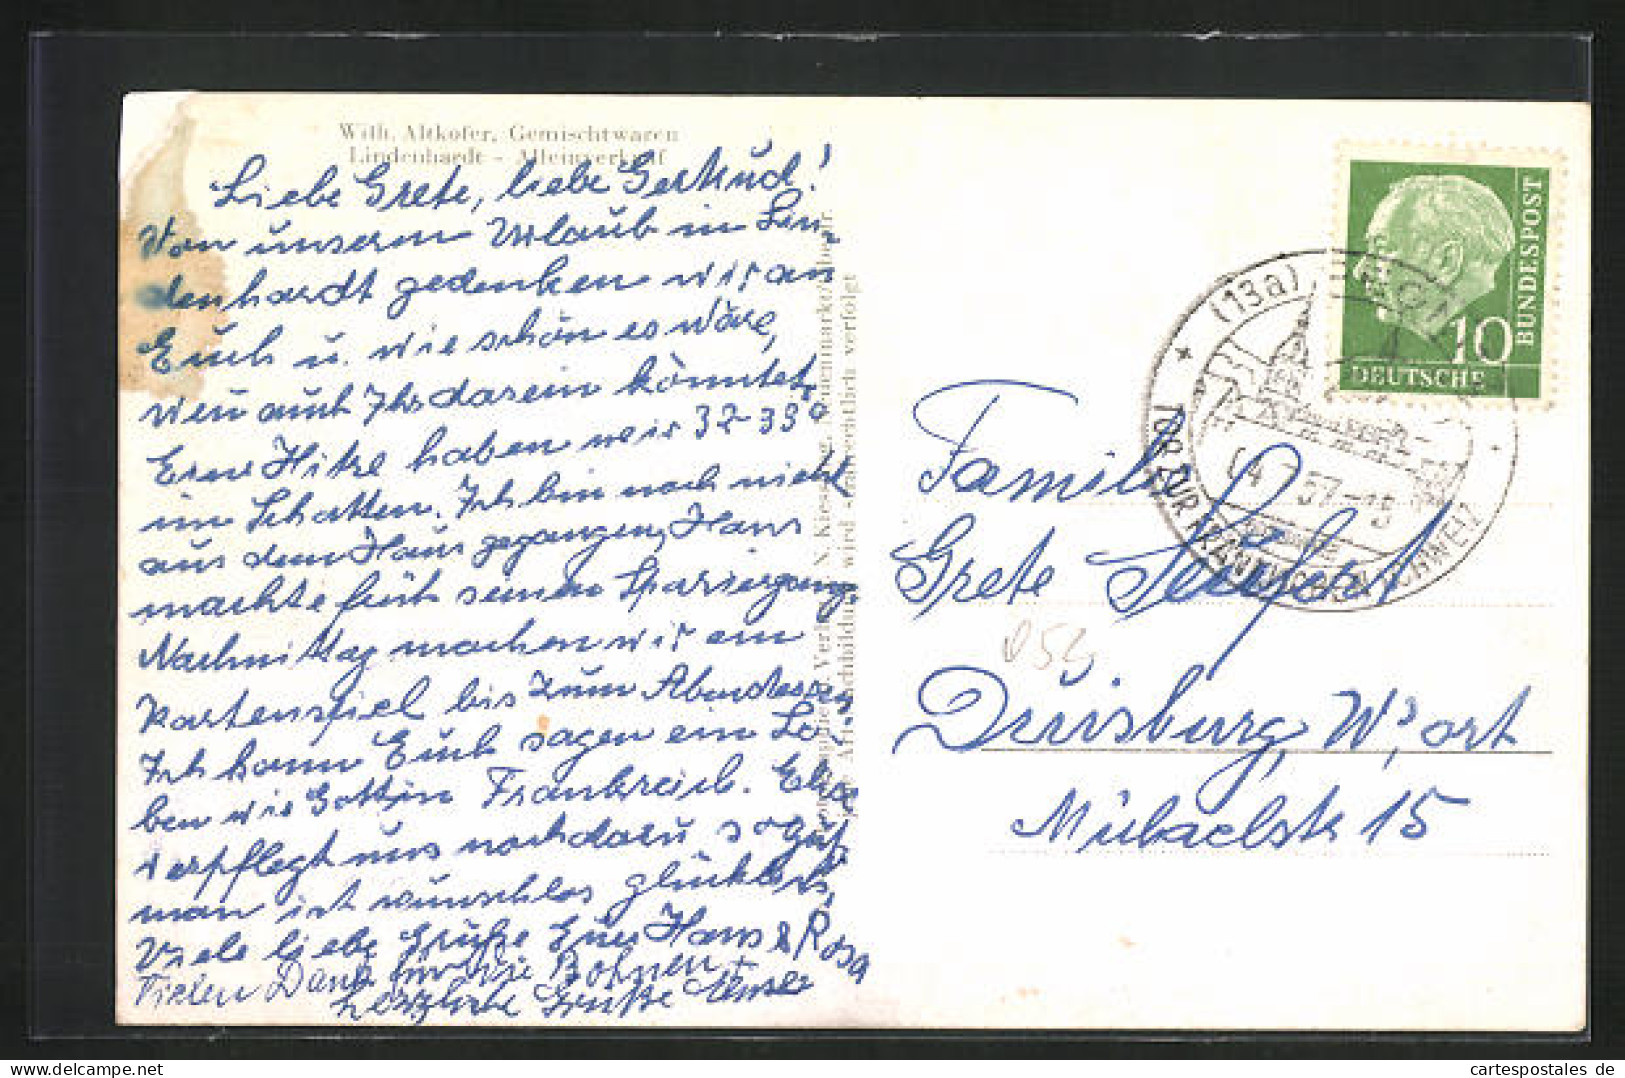 Wilh. Altkofer, Gemischtwaren
Lindenhardt - Alleinverkauf
Liebe Grete, liebe Gertrud!
Von unserem Urlaub in Lin-
denhardt gedenken wir an
Euch u. wie schön es wäre,
wen auch Ihr da sein könntet.
Eine Hitze haben wir 32-33°
im Schatten. Ich bin noch nicht
aus dem Haus gegangen, Hans
machte früh seinen Spaziergang,
Nachmittag machen wir ein
Kartenspiel bis zum Abendessen
Ich kann Euch sagen ein Le-
ben wie Gott in Frankreich. Elise
verpflegt uns noch dazu so gut,
man ist wunschlos glücklich,
Viele liebe Grüße Eure Hans & Rosa
Vielen Dank für die Bohnen +
herzliche Grüße Elise
wird gesetzlich verfolgt
DEUTSCHE
BUNDESPOST
10
(13a)
TOR ZUR FRÄNKISCHEN SCHWEIZ
4.7.57-15
Familie
Grete Seufert
Duisburg, W', ort
Michaelstr 15
cartespostales de